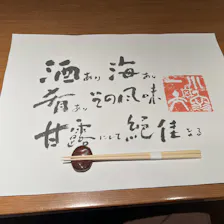 酒あり海あり
肴あその風味
甘露にして絶佳なる